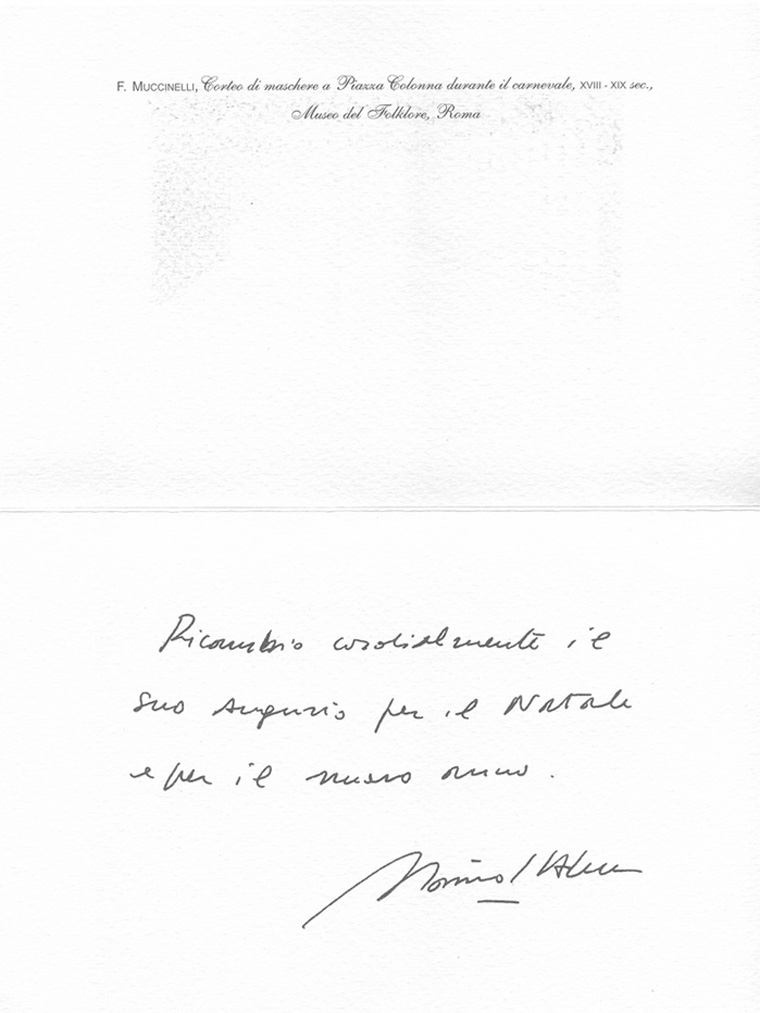 F. MUCCINELLI, Corteo di maschere a Piazza Colonna durante il carnevale, XVIII - XIX sec.,
Museo del Folklore, Roma
Ricambio cordialmente il
suo augurio per il Natale
e per il nuovo anno.